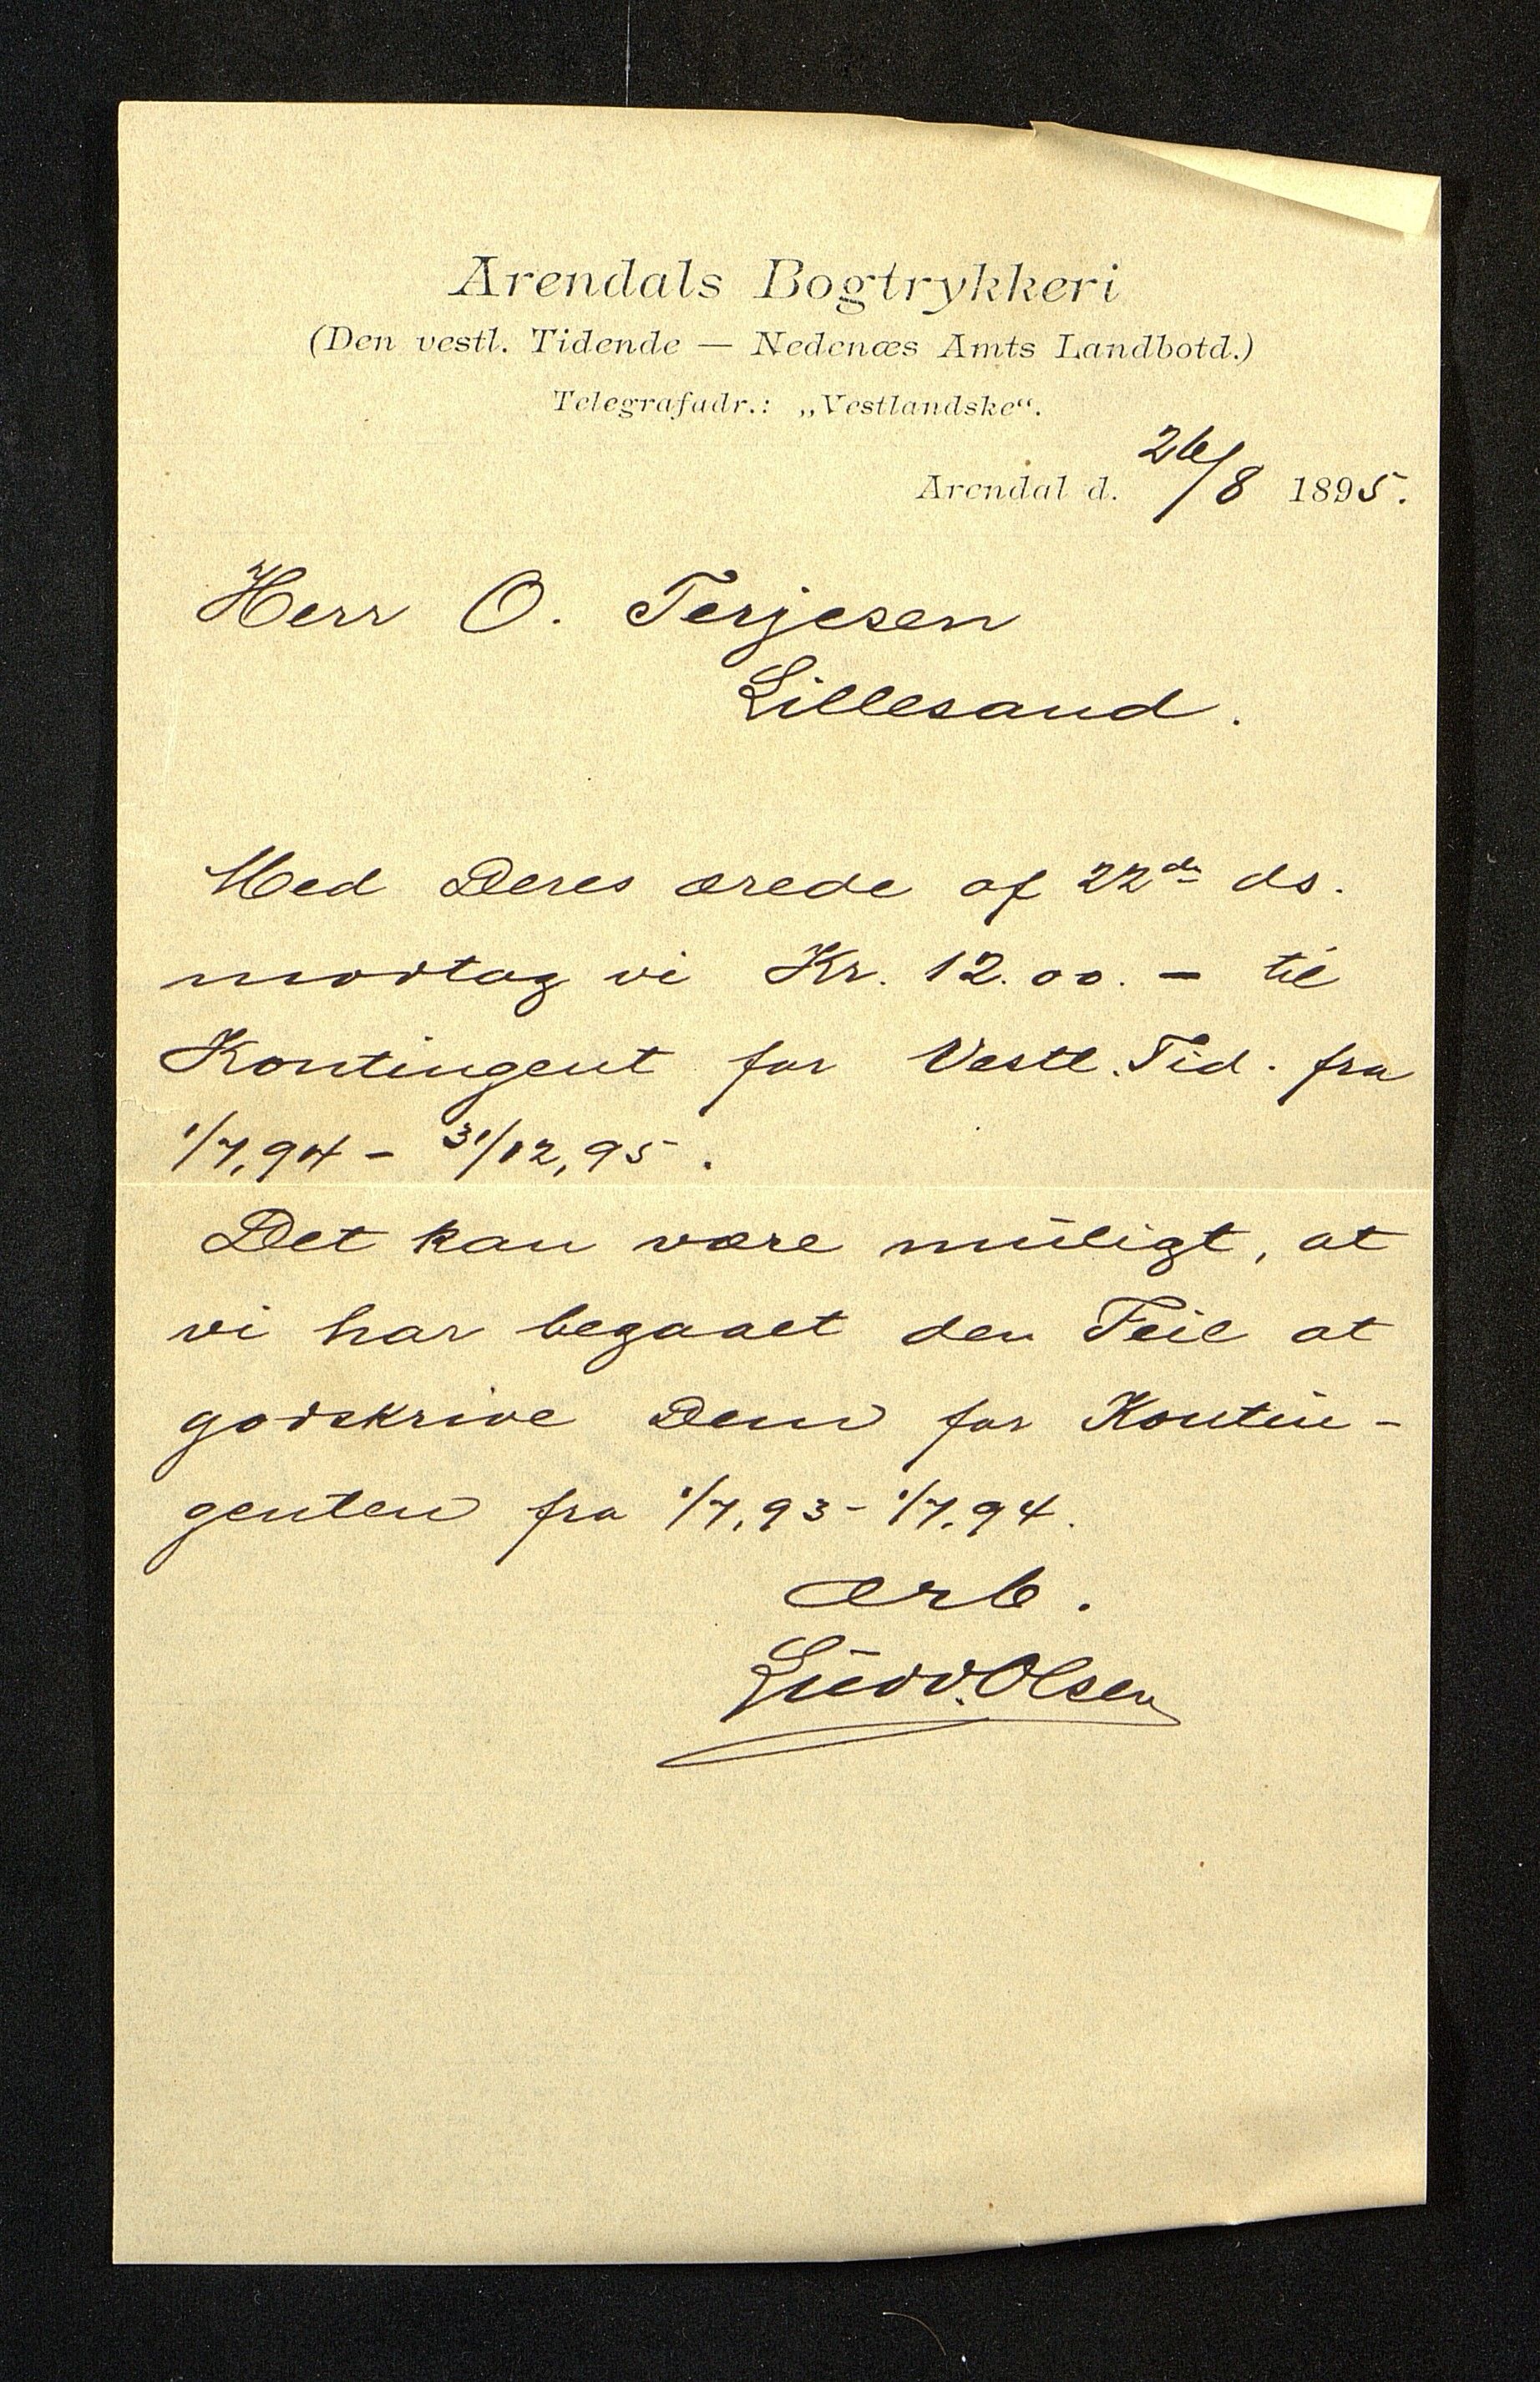 Arendals Bogtrykkeri
(Den vestl. Tidende — Nedenæs Amts Landbotd.)
Telegrafadr.: „Vestlandske“.
Arendal d. 26/8 1895.
Herr O. Terjesen
Lillesand.
Med Deres ærede af 22de ds.
modtog vi Kr. 12.00. – til
Kontingent for Vestl. Tid. fra
1/7, 94 – 31/12, 95.
Det kan være muligt, at
vi har begaaet den Feil at
godskrive Dem for Kontin-
genten fra 1/7, 93 – 1/7, 94.
Ærb.
Ludv. Olsen